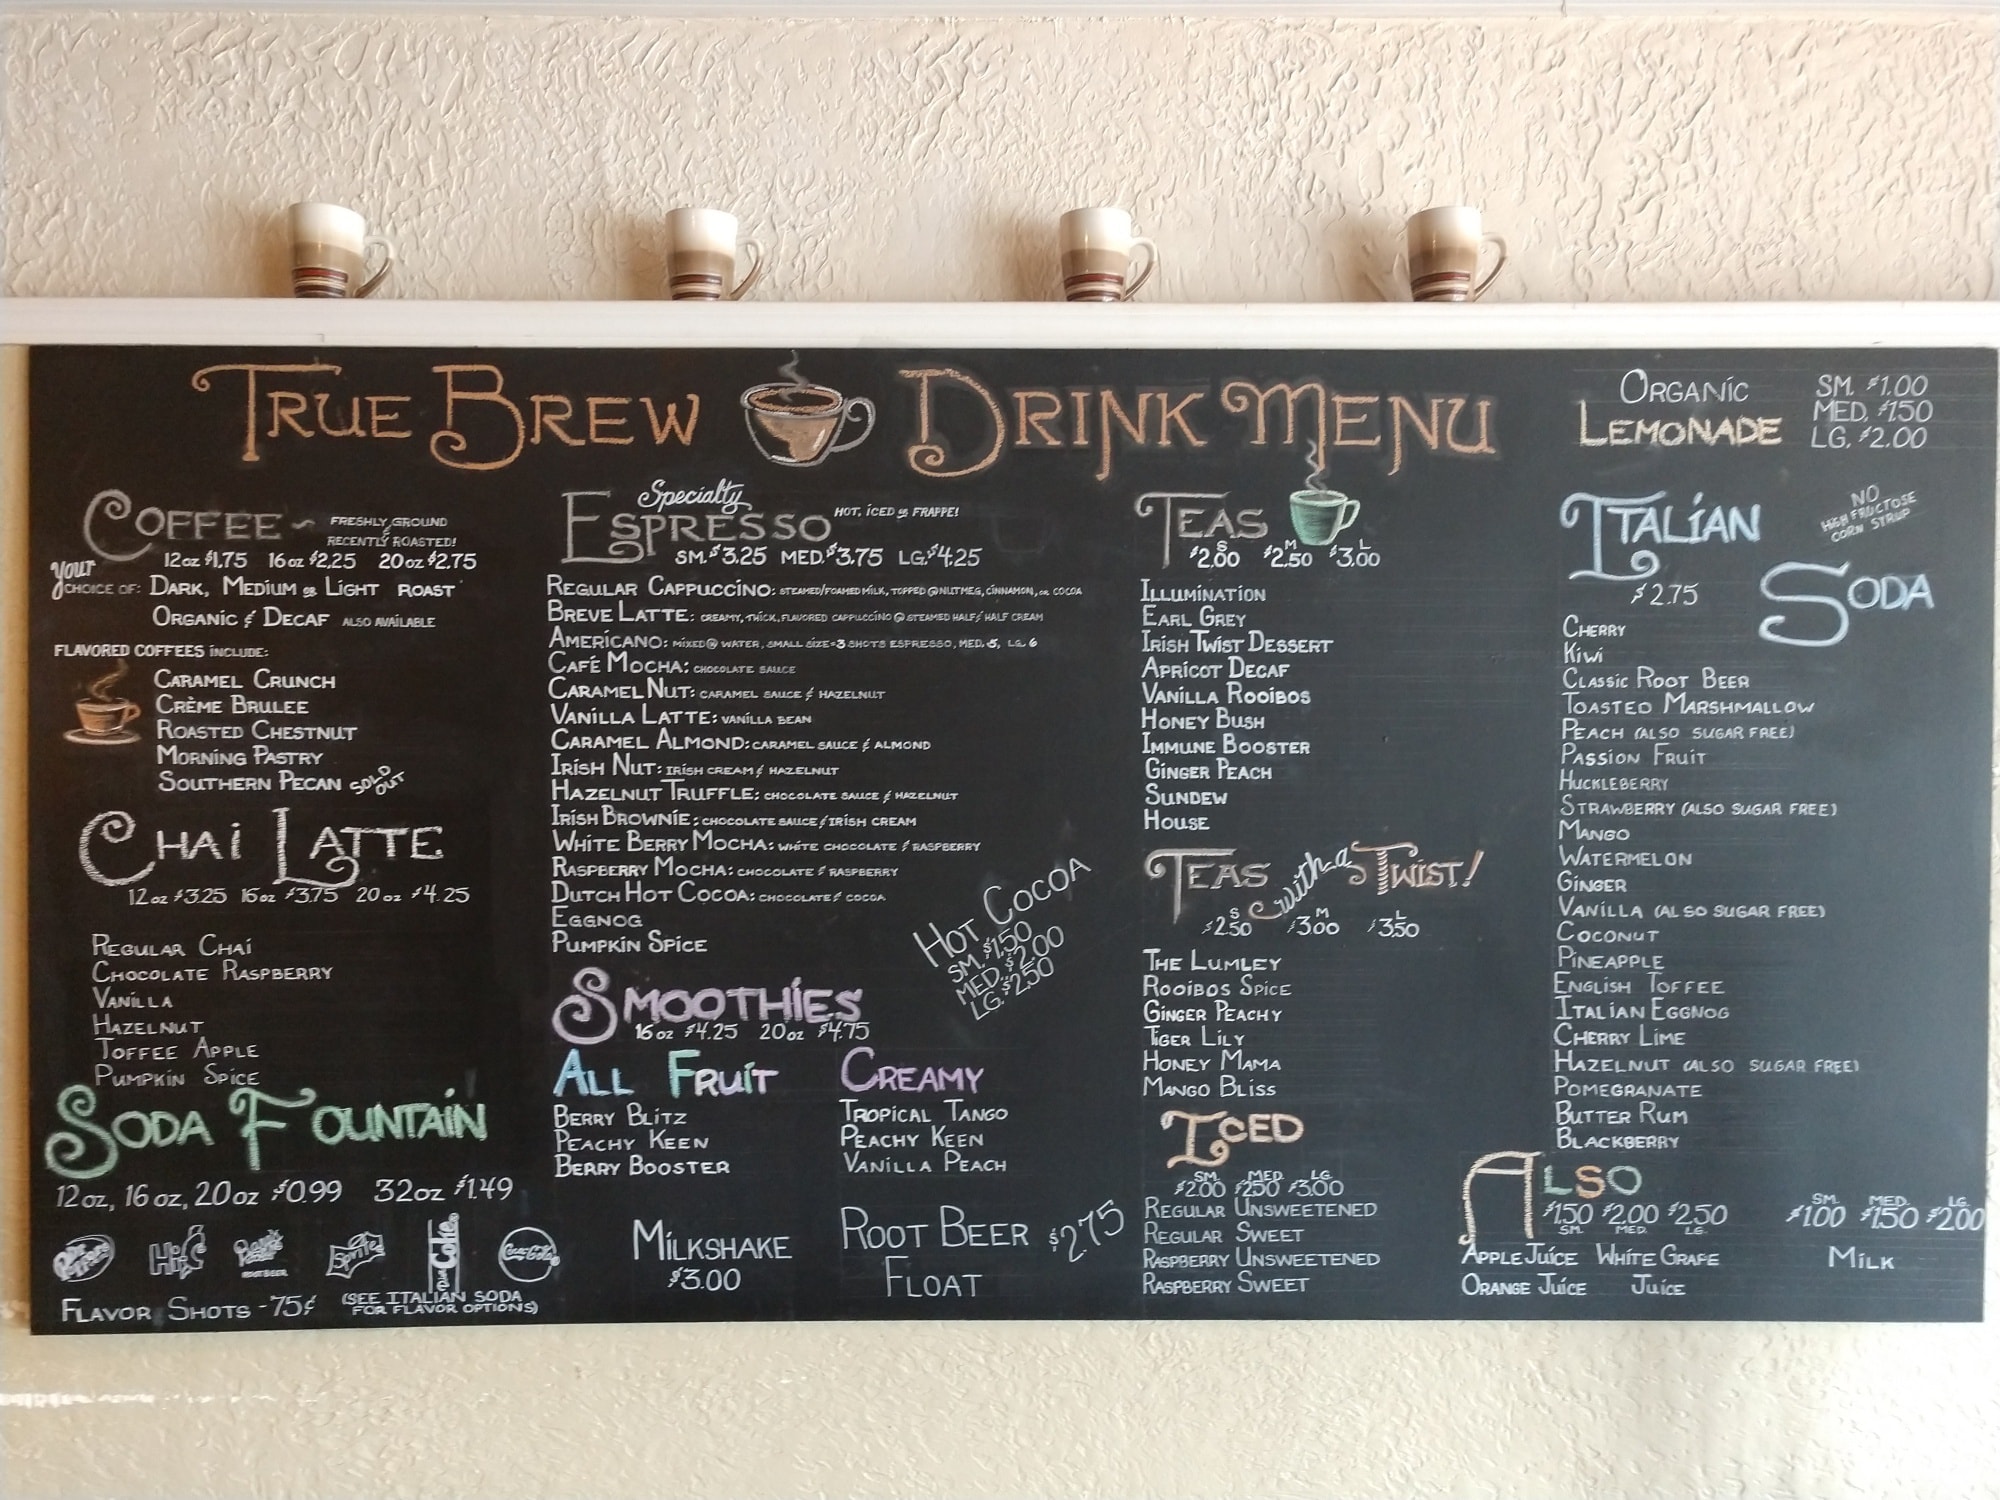 True Brew Drink Menu
Organic Lemonade
SM. $1.00
MED. $1.50
LG. $2.00
Coffee ~ Freshly Ground & Recently Roasted!
12oz $1.75 16oz $2.25 20oz $2.75
Your choice of: Dark, Medium or Light Roast
Organic & Decaf also available
Flavored Coffees include:
Caramel Crunch
Crème Brulee
Roasted Chestnut
Morning Pastry
Southern Pecan Sold Out
Chai Latte
12oz $3.25 16oz $3.75 20oz $4.25
Regular Chai
Chocolate Raspberry
Vanilla
Hazelnut
Toffee Apple
Pumpkin Spice
Soda Fountain
12oz, 16oz, 20oz $0.99 32oz $1.49
Dr Pepper Hi-C Barq's Root Beer Sprite Diet Coke Coca-Cola
Flavor Shots - 75¢ (See Italian Soda for Flavor Options)
Specialty Espresso Hot, Iced or Frappe!
SM. $3.25 MED. $3.75 LG. $4.25
Regular Cappuccino: steamed/foamed milk, topped @ nutmeg, cinnamon, or cocoa
Breve Latte: creamy, thick, flavored cappuccino @ steamed half & half cream
Americano: mixed @ water, small size=3 shots espresso, med. 5, lg. 6
Café Mocha: chocolate sauce
Caramel Nut: caramel sauce & hazelnut
Vanilla Latte: vanilla bean
Caramel Almond: caramel sauce & almond
Irish Nut: irish cream & hazelnut
Hazelnut Truffle: chocolate sauce & hazelnut
Irish Brownie: chocolate sauce & irish cream
White Berry Mocha: white chocolate & raspberry
Raspberry Mocha: chocolate & raspberry
Dutch Hot Cocoa: chocolate & cocoa
Eggnog
Pumpkin Spice
Hot Cocoa
SM. $1.50
MED. $2.00
LG. $2.50
Smoothies
16oz $4.25 20oz $4.75
All Fruit
Berry Blitz
Peachy Keen
Berry Booster
Creamy
Tropical Tango
Peachy Keen
Vanilla Peach
Milkshake
$3.00
Root Beer Float $2.75
Teas
S $2.00 M $2.50 L $3.00
Illumination
Earl Grey
Irish Twist Dessert
Apricot Decaf
Vanilla Rooibos
Honey Bush
Immune Booster
Ginger Peach
Sundew
House
Teas with a Twist!
S $2.50 M $3.00 L $3.50
The Lumley
Rooibos Spice
Ginger Peachy
Tiger Lily
Honey Mama
Mango Bliss
Iced
SM. $2.00 MED. $2.50 LG. $3.00
Regular Unsweetened
Regular Sweet
Raspberry Unsweetened
Raspberry Sweet
Italian Soda
No High Fructose Corn Syrup
$2.75
Cherry
Kiwi
Classic Root Beer
Toasted Marshmallow
Peach (also sugar free)
Passion Fruit
Huckleberry
Strawberry (also sugar free)
Mango
Watermelon
Ginger
Vanilla (also sugar free)
Coconut
Pineapple
English Toffee
Italian Eggnog
Cherry Lime
Hazelnut (also sugar free)
Pomegranate
Butter Rum
Blackberry
Also
$1.50 $2.00 $2.50
SM. MED. LG.
Apple Juice White Grape
Orange Juice Juice
SM. MED. LG.
$1.00 $1.50 $2.00
Milk